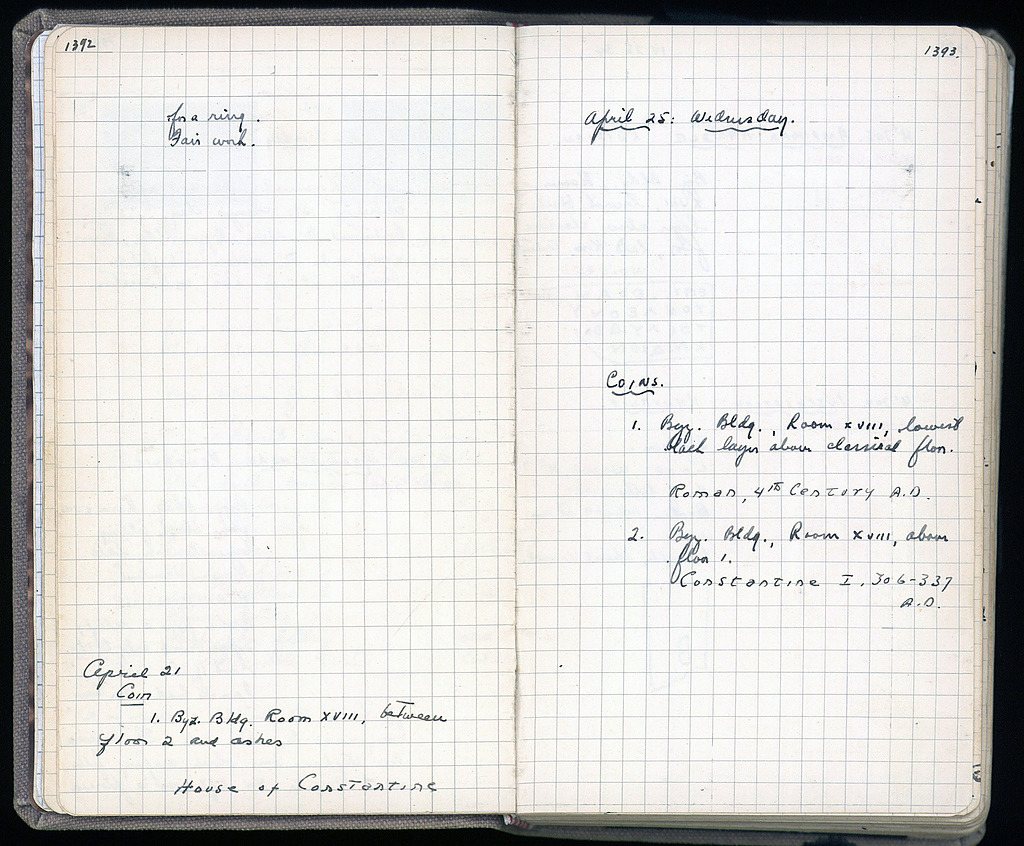 1392
for a ring.
Fair work.
April 21
Coin
1. Byz. Bldg. Room XVIII, between
floor 2 and ashes
House of Constantine
1393.
April 25: Wednesday.
Coins.
1. Byz. Bldg., Room XVIII, lowest
black layer above classical floor.
Roman, 4th Century A.D.
2. Byz. Bldg., Room XVIII, above
floor 1.
Constantine I, 306-337
A.D.